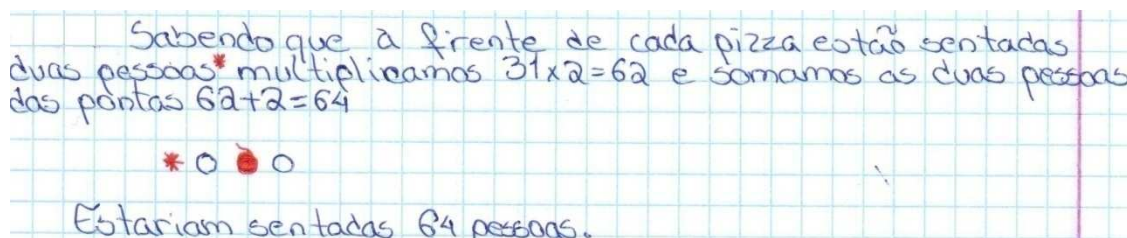 Sabendo que a frente de cada pizza estão sentadas
duas pessoas* multiplicamos 31x2=62 e somamos as duas pessoas
das pontas 62+2=64
* O O
Estariam sentadas 64 pessoas.